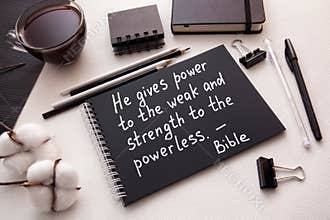 He gives power
to the weak and
strength to the
powerless. —
Bible